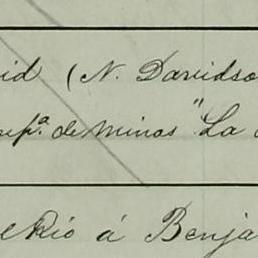 id (N. Davidso
rep.ª de minas "La
ekió á Benja